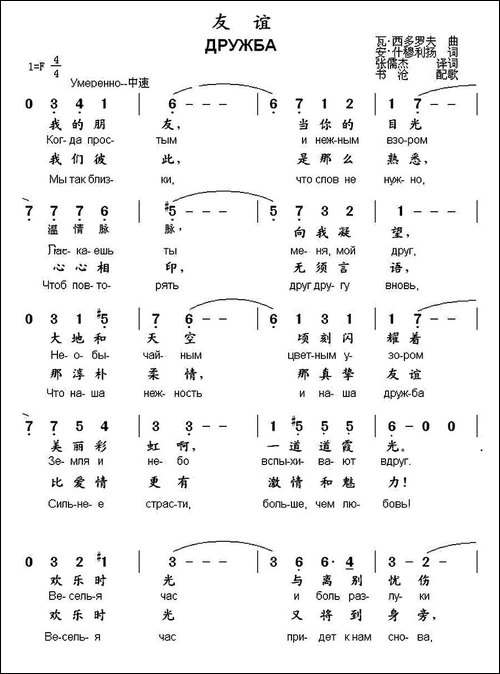 友 谊
ДРУЖБА
瓦·西多罗夫 曲
安·什穆利扬 词
张儒杰 译词
书 沧 配歌
1=F 4/4
Умеренно--中速
0 3 4 1 | 6 - - - | 6 7 1 2 | 1 7 - -
我 的 朋 友, 当 你 的 目 光
Ког-да прос- тым и неж-ным взо-ром
我 们 彼 此, 是 那 么 熟 悉,
Мы так близ- ки, что слов не нуж-но,
7 7 7 6 | #5 - - - | 5 7 3 2 | 1 - - -
温 情 脉 脉, 向 我 凝 望,
Лас-каешь ты ме-ня, мой друг,
心 心 相 印, 无 须 言 语,
Чтоб пов-то- рять друг дру-гу вновь,
0 3 1 #5 | 7 6 - - | 6 1 3 1 | 1 7 - -
大 地 和 天 空 顷 刻 闪 耀 着
Не-о-бы- чай-ным цвет-ным у- зо-ром
那 淳 朴 柔 情, 那 真 挚 友 谊
Что на-ша неж-ность и на-ша друж-ба
7 7 5 4 | 3 3 - - | 1 #5 5 5 | 6 - 0 0
美 丽 彩 虹 啊, 一 道 道 霞 光。
Зем-ля и не-бо вспы-хи-ва-ют вдруг.
比 爱 情 更 有 激 情 和 魅 力!
Силь-не-е страс-ти, боль-ше, чем лю-бовь!
0 3 2 #1 | 3 - - - | 3 6 6· 4 | 3 - 2 -
欢 乐 时 光 与 离 别 忧 伤
Ве-сель-я час и боль раз- лу-ки
欢 乐 时 光 又 将 到 身 旁,
Ве-сель-я час при-дет к нам сно-ва,